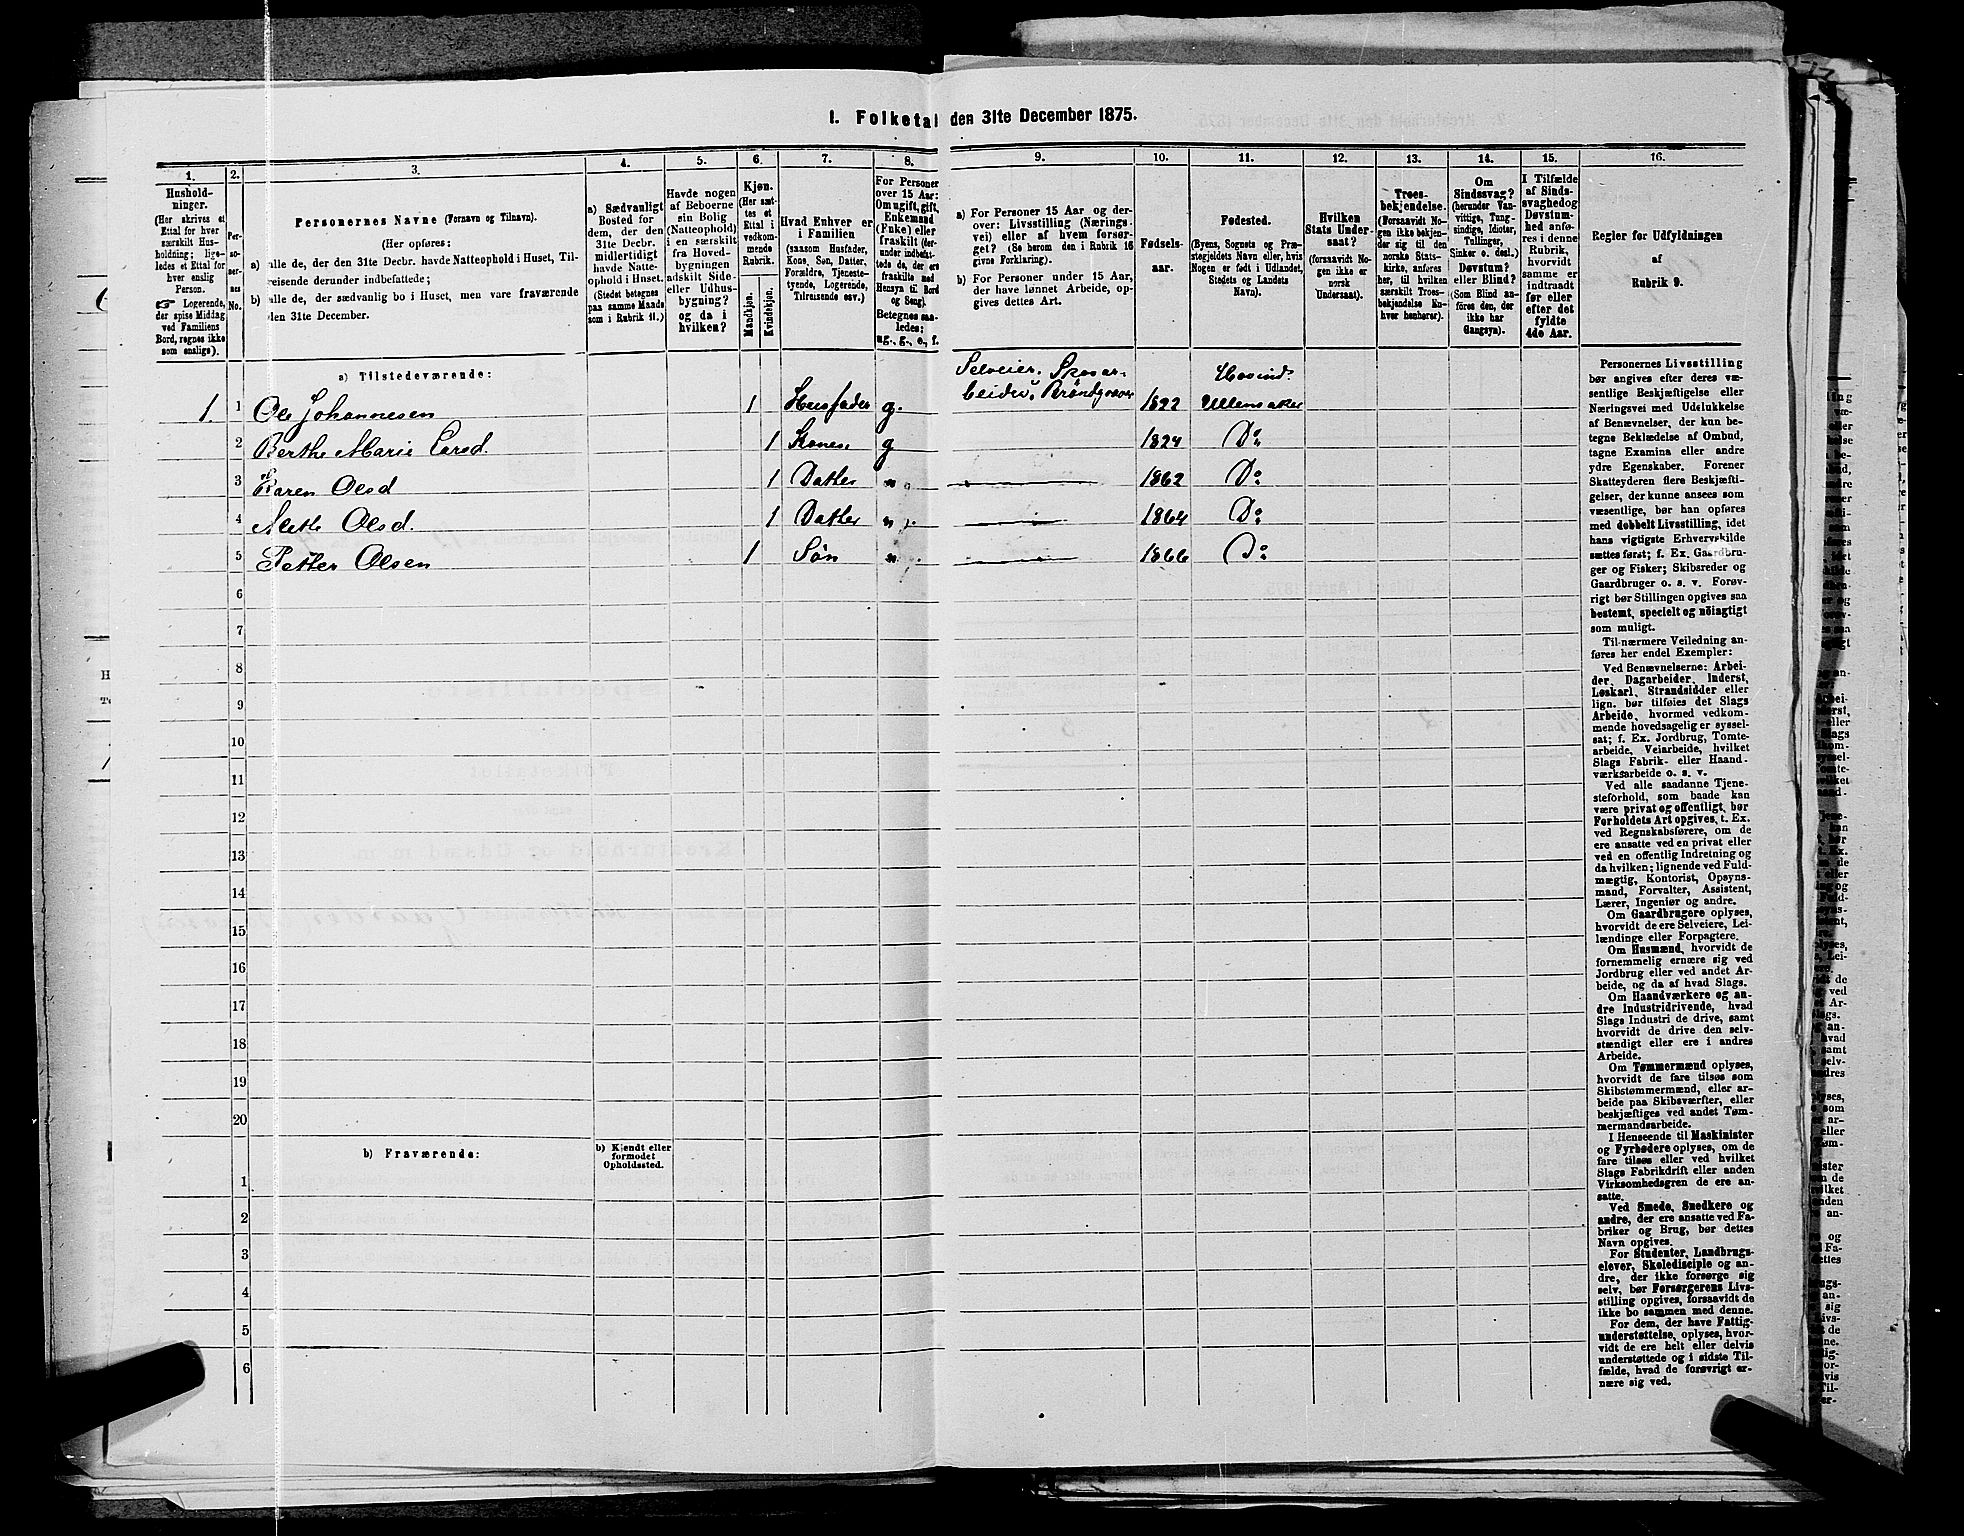 1. Folketal den 31te December 1875.
1.
2.
3.
4.
5.
6.
7.
8.
9.
10.
11.
12.
13.
14.
15.
16.
Hushold-
ninger.
(Her skrives et
Ettal for hver
særskilt Hus-
holdning; lige-
ledes et Ettal for
hver enslig
Person.
☞ Logerende,
der spise Middag
ved Familiens
Bord, regnes ikke
som enslige).
Per-
so-
ner-
nes
No.
Personernes Navne (Fornavn og Tilnavn).
(Her opføres:
a) alle de, der den 31te Decbr. havde Natteophold i Huset, Til-
reisende derunder indbefattede;
b) alle de, der sædvanlig bo i Huset, men vare fraværende
den 31te December.
a) Sædvanligt
Bosted for
dem, der den
31te Decbr.
midlertidigt
havde Natte-
ophold i Huset.
(Stedet betegnes
paa samme Maade
som i Rubrik 11.)
Havde nogen
af Beboerne
sin Bolig
(Natteophold)
i en særskilt
fra Hoved-
bygningen
adskilt Side-
eller Udhus-
bygning?
og da i
hvilken?
Kjøn.
(Her sæt-
tes et
Ettal i
vedkom-
mende
Rubrik.
Mandkjøn.
Kvindekjøn.
Hvad Enhver er
i Familien
(saasom Husfader,
Kone, Søn, Datter,
Forældre, Tjeneste-
tyende, Logerende,
Tilreisende osv.)
For Personer
over 15 Aar:
Om ugift, gift,
Enkemand
(Enke) eller
fraskilt (der-
under indbefat-
tede de, der ere
fraskilte med
Hensyn til Bord
og Seng).
Betegnes saa-
ledes:
ug., g., e., f.
a) For Personer 15 Aar og der-
over: Livsstilling (Nærings-
vei) eller af hvem forsør-
get? (Se herom den i Rubrik 16
givne Forklaring).
b) For Personer under 15 Aar,
der have lønnet Arbeide, op-
gives dettes Art.
Fødsels-
aar.
Fødested.
(Byens, Sognets og Præ-
stegjeldets Navn eller, hvis
Nogen er født i Udlandet,
Stedets og Landets
Navn).
Hvilken
Stats Under-
saat?
(forsaavidt No-
gen ikke er
norsk
Undersaat).
Troes-
bekjendelse.
(Forsaavidt No-
gen ikke bekjen-
der sig til den
norske Stats-
kirke, anføres
her, til hvilken
særskilt Troes-
bekjendelse En-
hver henhører).
Om
Sindssvag?
(herunder Van-
vittige, Tung-
sindige, Idioter,
Tullinger,
Sinker o. desl.).
Døvstum?
eller Blind?
(Som Blind an-
føres den, der
ikke har
Gangsyn).
I Tilfælde
af Sinds-
svaghed og
Døvstum-
hed anfø-
res i denne
Rubrik,
hvorvidt
samme er
indtraadt
før eller
efter det
fyldte
4de Aar.
Regler for Udfyldningen
af
Rubrik 9.
a) Tilstedeværende:
Selveier. Skovar-
beider, Brøndgraver
Hovind.
1. 1 Ole Johannesen 1 Husfader g. 1822 Ullensaker
2 Berthe Marie Larsd. 1 Kone g 1824 Do
3 Karen Olsd 1 Datter 1862 Do
4 Mette Olsd. 1 Datter 1864 Do
5 Petter Olsen 1 Søn 1866 Do
6
7
8
9
10
11
12
13
14
15
16
17
18
19
20
b) Fraværende:
b) Kjendt eller
formodet
Opholdssted.
1
2
3
4
5
6
Personernes Livsstilling
bør angives efter deres væ-
sentlige Beskjæftigelse eller
Næringsvei med Udelukkelse
af Benævnelser, der kun be-
tegne Beklædelse af Ombud,
tagne Examina eller andre
ydre Egenskaber. Forener
Skatteyderen flere Beskjæfti-
gelser, der kunne ansees som
væsentlige, bør han opføres
med dobbelt Livsstilling, idet
hans vigtigste Erhvervskilde
sættes først; f. Ex. Gaardbru-
ger og Fisker; Skibsreder og
Gaardbruger o. s. v. Forøv-
rigt bør Stillingen opgives saa
bestemt, specielt og nöiagtigt
som muligt.
Til nærmere Veiledning an-
føres her endel Exempler:
Ved Benævnelserne: Arbei-
der, Dagarbeider, Inderst,
Løskarl, Strandsidder eller
lign. bør tilføies det Slags
Arbeide, hvormed vedkom-
mende hovedsagelig er syssel-
sat; f. Ex. Jordbrug, Tomte-
arbeide, Veiarbeide, hvilket
Slags Fabrik- eller Haand-
værksarbeide o. s. v.
Ved alle saadanne Tjene-
steforhold, som baade kan
være privat og offentligt, bør
Forholdets Art opgives, t. Ex.
ved Regnskabsførere, om de
ere ansatte ved en privat eller
ved en offentlig Indretning og
da hvilken; lignende ved Fuld-
mægtig, Kontorist, Opsyns-
mand, Forvalter, Assistent,
Lærer, Ingeniør og andre.
Om Gaardbrugere oplyses,
hvorvidt de ere Selveiere, Lei-
lændinge eller Forpagtere.
Om Husmænd, hvorvidt de
fornemmelig ernære sig ved
Jordbrug eller ved andet Ar-
beide, og da af hvad Slags.
Om Haandværkere og an-
dre Industridrivende, hvad
Slags Industri de drive, samt
hvorvidt de drive den selv-
stændigt eller ere i andres
Arbeide.
Om Tømmermænd oplyses,
hvorvidt de fare tilsøs som
Skibstømmermænd, eller ar-
beide paa Skibsværfter, eller
beskjæftiges ved andet Tøm-
mermandsarbeide.
I Henseende til Maskinister
og Fyrbødere oplyses, om de
fare tilsøs eller ved hvilket
Slags Fabrikdrift eller anden
Virksomhedsgren de ere an-
satte.
Ved Smede, Snedkere og
andre, der ere ansatte ved Fa-
briker og Brug, bør dettes
Navn opgives.
For Studenter, Landbrugs-
elever, Skoledisciple og an-
dre, der ikke forsørge sig
selv, bør Forsørgerens Livs-
stilling opgives, forsaavidt de
ikke bo sammen med denne.
For dem, der have Fattig-
understøttelse, oplyses, hvor-
vidt de ere helt eller delvis
understøttede og i sidste Til-
fælde, hvad de forøvrigt er-
nære sig ved.